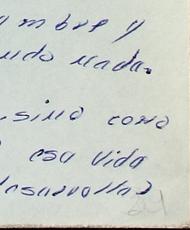 umbre y
undo nada.
sino como
esa vida
desarrollad